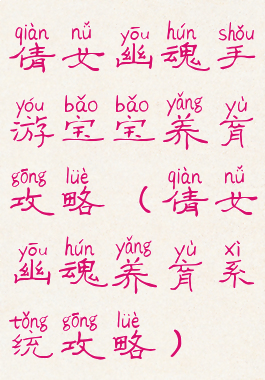 qiàn nǚ yōu hún shǒu
倩女幽魂手
yóu bǎo bǎo yǎng yù
游宝宝养育
gōng lüè qiàn nǚ
攻略（倩女
yōu hún yǎng yù xì
幽魂养育系
tǒng gōng lüè
统攻略）